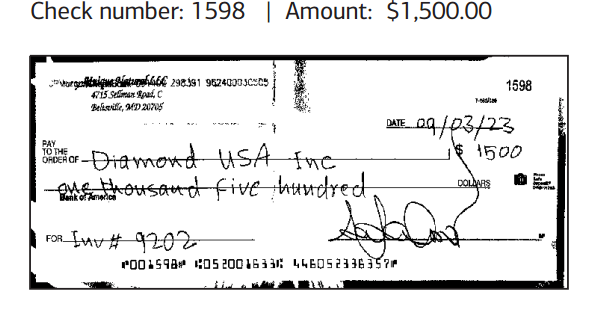 Check number: 1598 | Amount: $1,500.00
298391
1598
4715 Sellman Road, C
Beltsville, MD 20705
DATE 09/03/23
PAY
TO THE
ORDER OF Diamond USA Inc $ 1500
one thousand five hundred DOLLARS
Bank of America
FOR Inv# 9202
⑈001598⑈ ⑆052001633⑆ 446052336357⑈